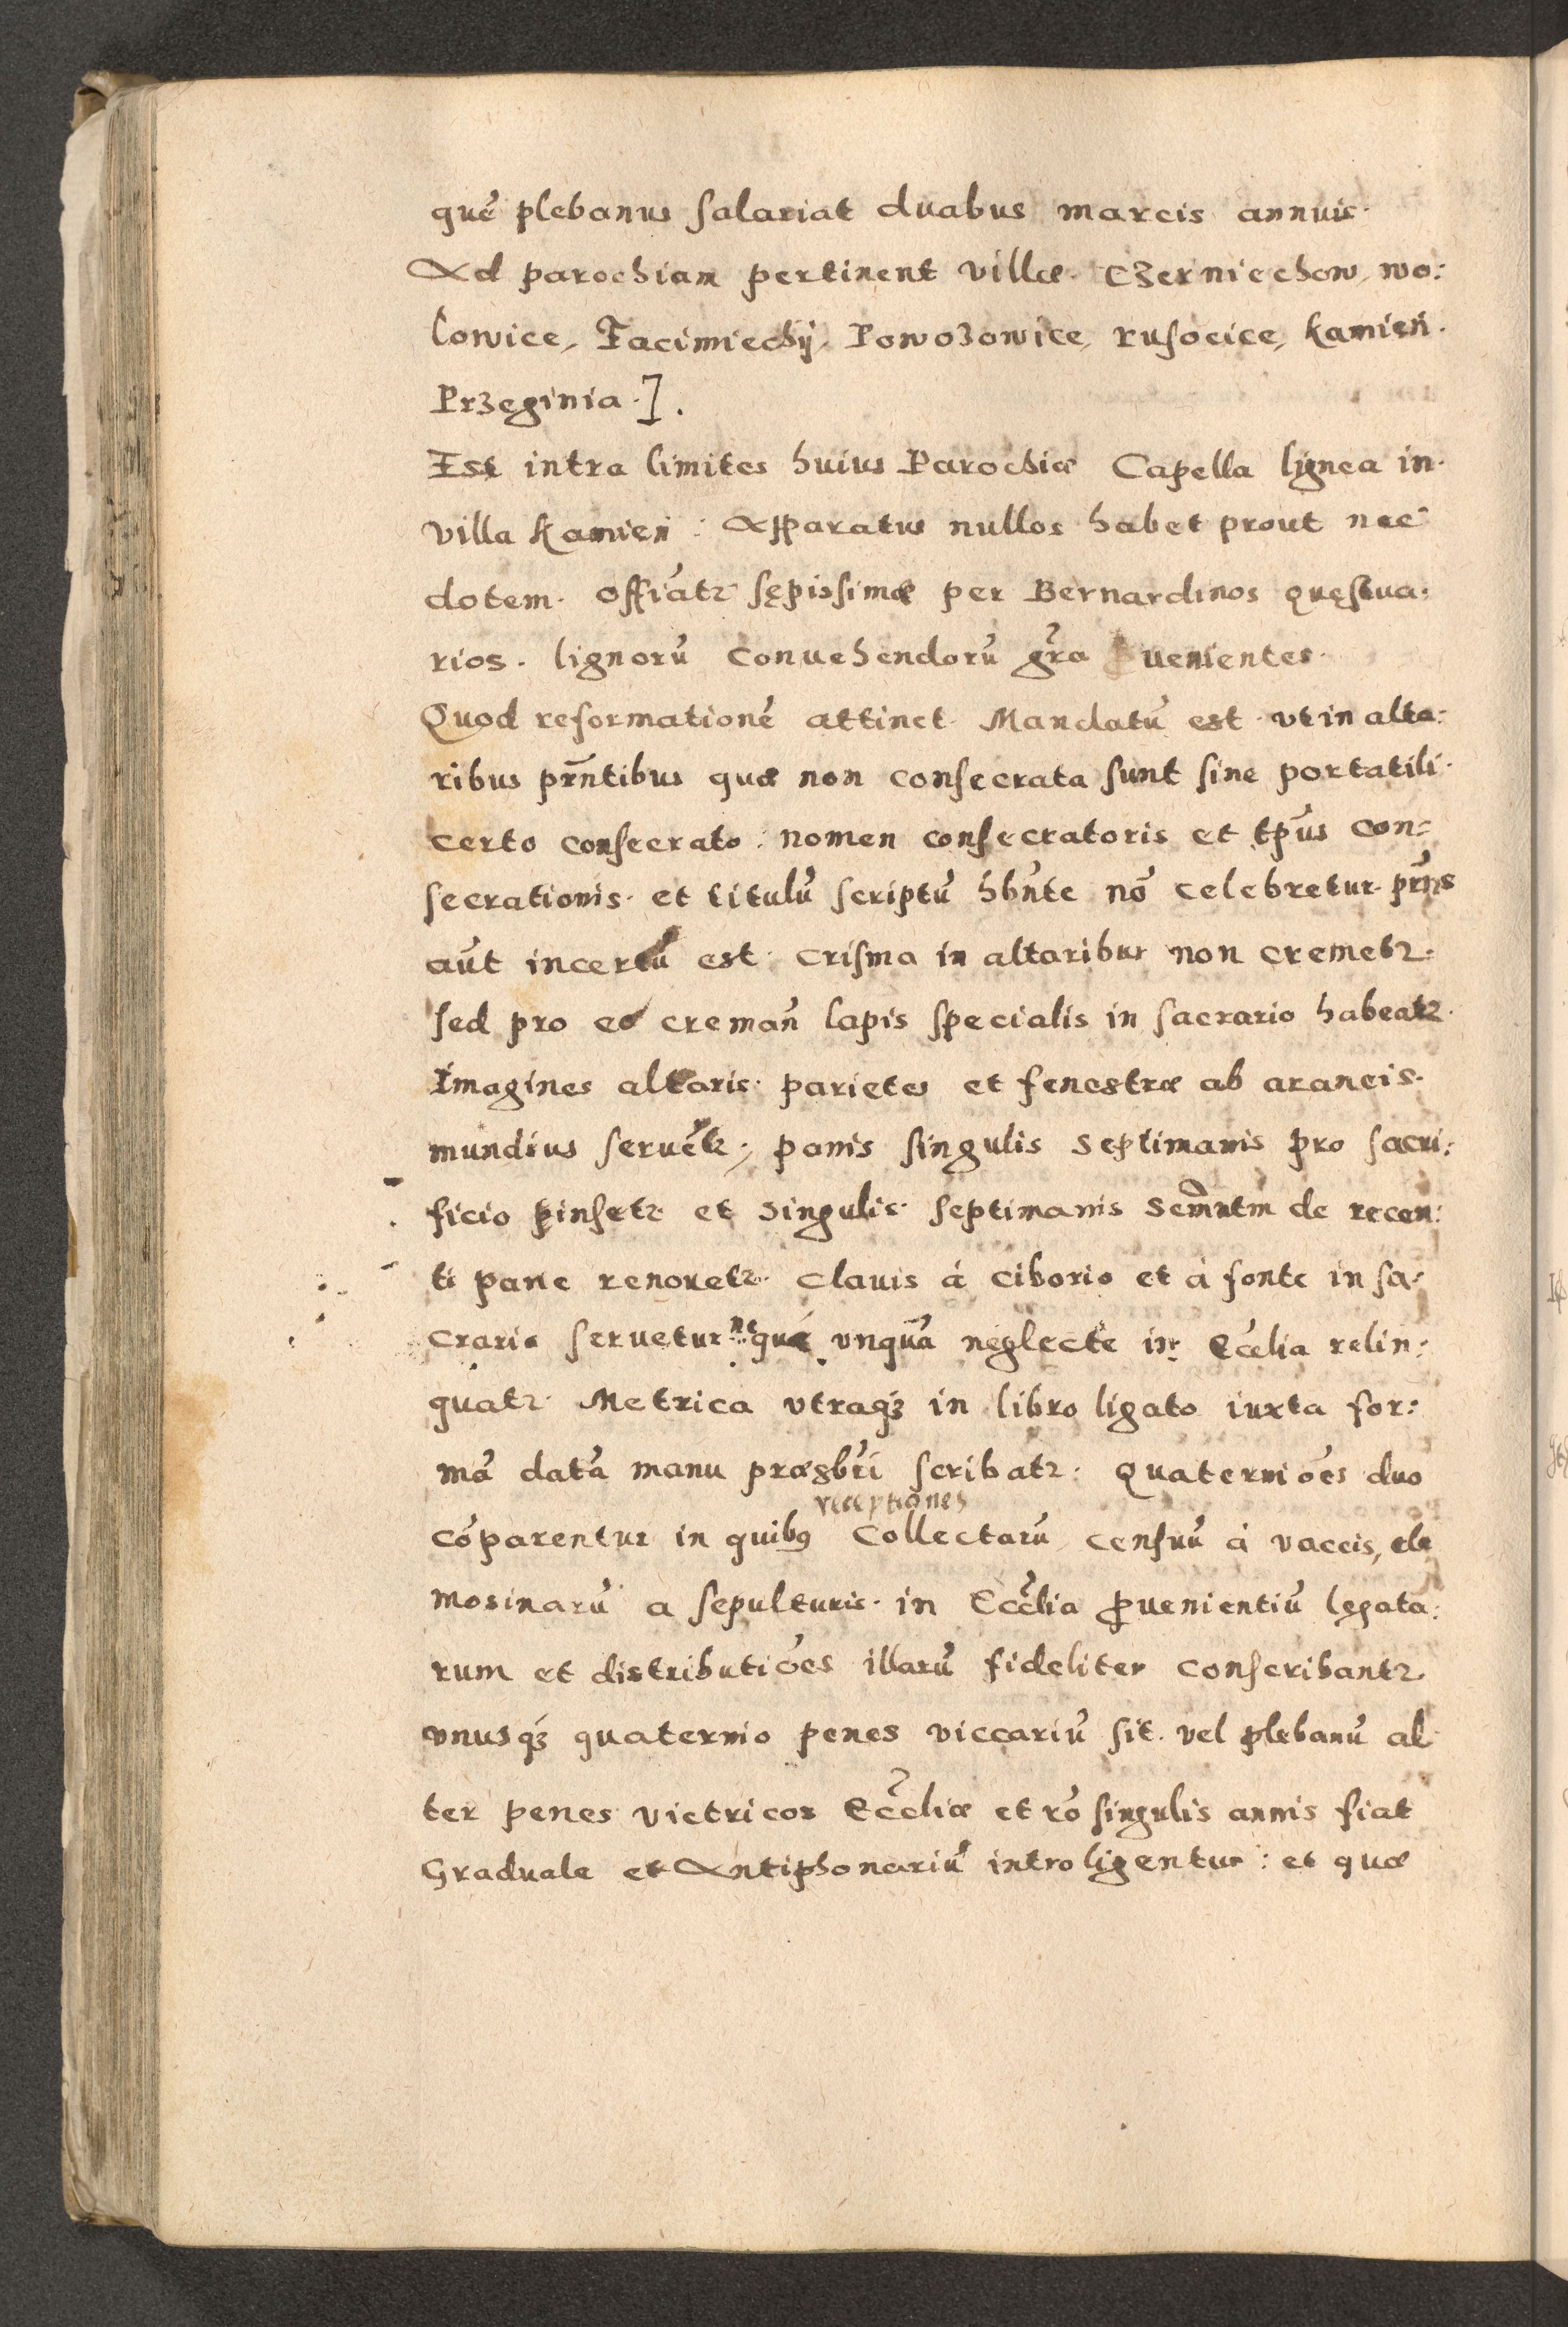 quē plebanus salariat duabus marcis annuis.
Ad parochiam pertinent villæ. Czerniechow, wo:
lowice, Facimiechÿ, Powozowice, rusocice, kamień.
Przeginia.].
Est intra limites huius Parochiæ Capella lignea in.
villa kamień: Apparatus nullos habet prout nec
dotem. Offiātr sępissimæ per Bernardinos quęstua:
rios. lignorū Conuehendorū grā uenientes.
Quod reformationē attinet. Mandatū est. vt in alta:
ribus prñtibus quæ non consecrata sunt sine portatili.
certo consecrato: nomen consecratoris et tp̄us con:
secrationis. et titulū scriptū hb̄nte nō celebretur. prñs
aūt incertū est. Crisma in altaribus non cremetr.
sed pro eo cremañ lapis specialis in sacrario habeatr.
Imagines altaris. parietes et fenestræ ab araneis.
mundius seruētr; panis singulis septimanis pro sacri:
ficio pinsetr et singulis septimanis Semñtm de recen:
ti pane renovetr. Clauis à ciborio et à fonte in sa:
crario seruetur neque vnquā neglecte in Eccelia relin:
quatr. Metrica vtraqȝ in libro ligato iuxta for:
mā datā manu præsbr̄i scribatr. Quaterniōes duo
receptiones
cōparentur in quibꝯ Collectarū, censuū à vaccis, ele
mosinarū a sepulturis. in Ecc̄lia ꝓuenientiū lęgata:
rum et distributiōes illarū fideliter conscribantr.
vnusqȝ quaternio penes viccariū sit. vel plebanū al
ter penes vietricos Ecc̄liæ et rō singulis annis fiat
Graduale et Antiphonariū introligentur: et quæ